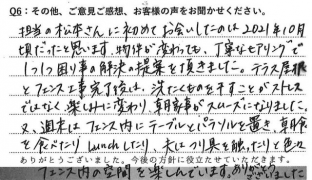 Q6：その他、ご意見ご感想、お客様の声をお聞かせください。
担当の松本さんに初めてお会いしたのは2021年10月
頃だったと思います。物件が変わっても、丁寧なヒアリングで
1つ1つ困り事の解決の提案を頂きました。テラス屋根
とフェンス工事完了後は、洗たくものを干すことがストレス
ではなく楽しみに変わり、朝家事がスムーズになりました。
又、週末はフェンス内にテーブルとパラソルを置き、朝食
を食べたりLunchしたり、夫はつり具を触ったりと色々
ありがとうございました。今後の方針に役立たせていただきます。
フェンス内の空間を楽しんでいます。ありがとうございました